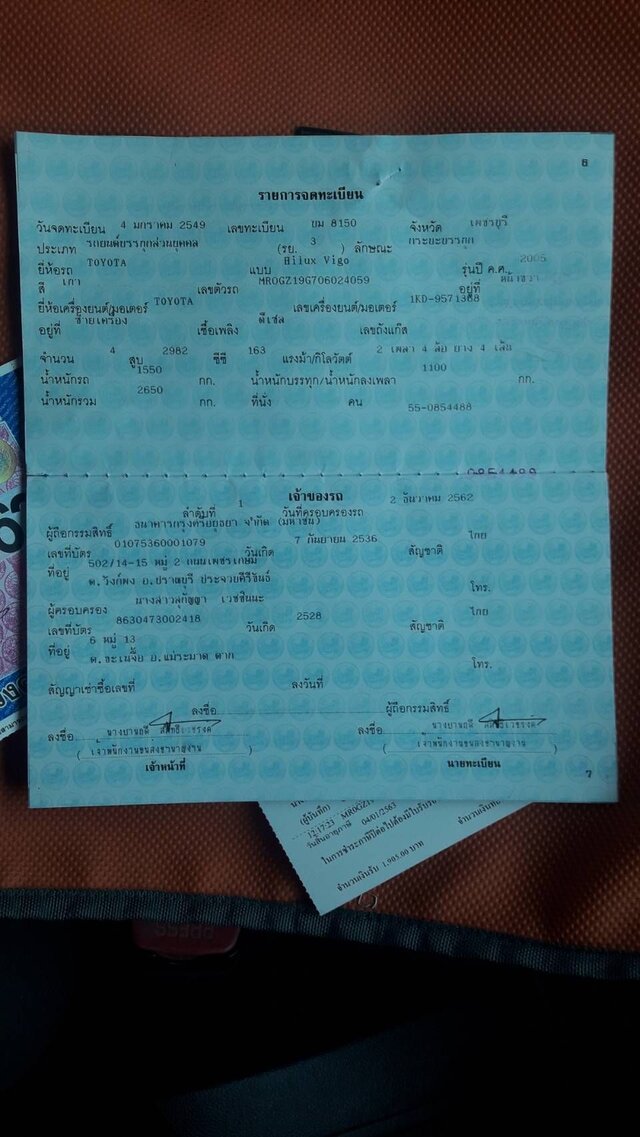 6
รายการจดทะเบียน
วันจดทะเบียน 4 มกราคม 2549 เลขทะเบียน ยม 8150 จังหวัด เพชรบุรี
ประเภท รถยนต์บรรทุกส่วนบุคคล (รย. 3 ) ลักษณะ กระบะบรรทุก
ยี่ห้อรถ TOYOTA แบบ Hilux Vigo รุ่นปี ค.ศ. 2005
สี เทา เลขตัวรถ MROGZ19G706024059 อยู่ที่
ยี่ห้อเครื่องยนต์/มอเตอร์ TOYOTA เลขเครื่องยนต์/มอเตอร์ 1KD-9571388
อยู่ที่ ซ้ายเครื่อง เชื้อเพลิง ดีเซล เลขถังแก๊ส
จำนวน 4 สูบ 2982 ซีซี 163 แรงม้า/กิโลวัตต์ 2 เพลา 4 ล้อ ยาง 4 เส้น
น้ำหนักรถ 1550 กก. น้ำหนักบรรทุก/น้ำหนักลงเพลา 1100 กก.
น้ำหนักรวม 2650 กก. ที่นั่ง คน
55-0854488
เจ้าของรถ
ลำดับที่ 1 วันที่ครอบครองรถ 2 ธันวาคม 2562
ผู้ถือกรรมสิทธิ์ ธนาคารกรุงศรีอยุธยา จำกัด (มหาชน)
เลขที่บัตร 01075360001079 วันเกิด 7 กันยายน 2536 สัญชาติ ไทย
ที่อยู่ 502/14-15 หมู่ 2 ถนนเพชรเกษม
ต.วังก์พง อ.ปราณบุรี ประจวบคีรีขันธ์ โทร.
ผู้ครอบครอง
เลขที่บัตร 8630473002418 วันเกิด 2528 สัญชาติ ไทย
ที่อยู่ 6 หมู่ 13
ต.ขะเนจื้อ อ.แม่ระมาด ตาก โทร.
สัญญาเช่าซื้อเลขที่ ลงวันที่
ลงชื่อ ผู้ถือกรรมสิทธิ์
ลงชื่อ ลงชื่อ
(เจ้าพนักงานขนส่งชำนาญงาน) (เจ้าพนักงานขนส่งชำนาญงาน)
เจ้าหน้าที่ นายทะเบียน
7
(ผู้บันทึก)
12:17:23
วันสิ้นอายุภาษี 04/01/2563
จำนวนเงินรับ 1,905.00 บาท